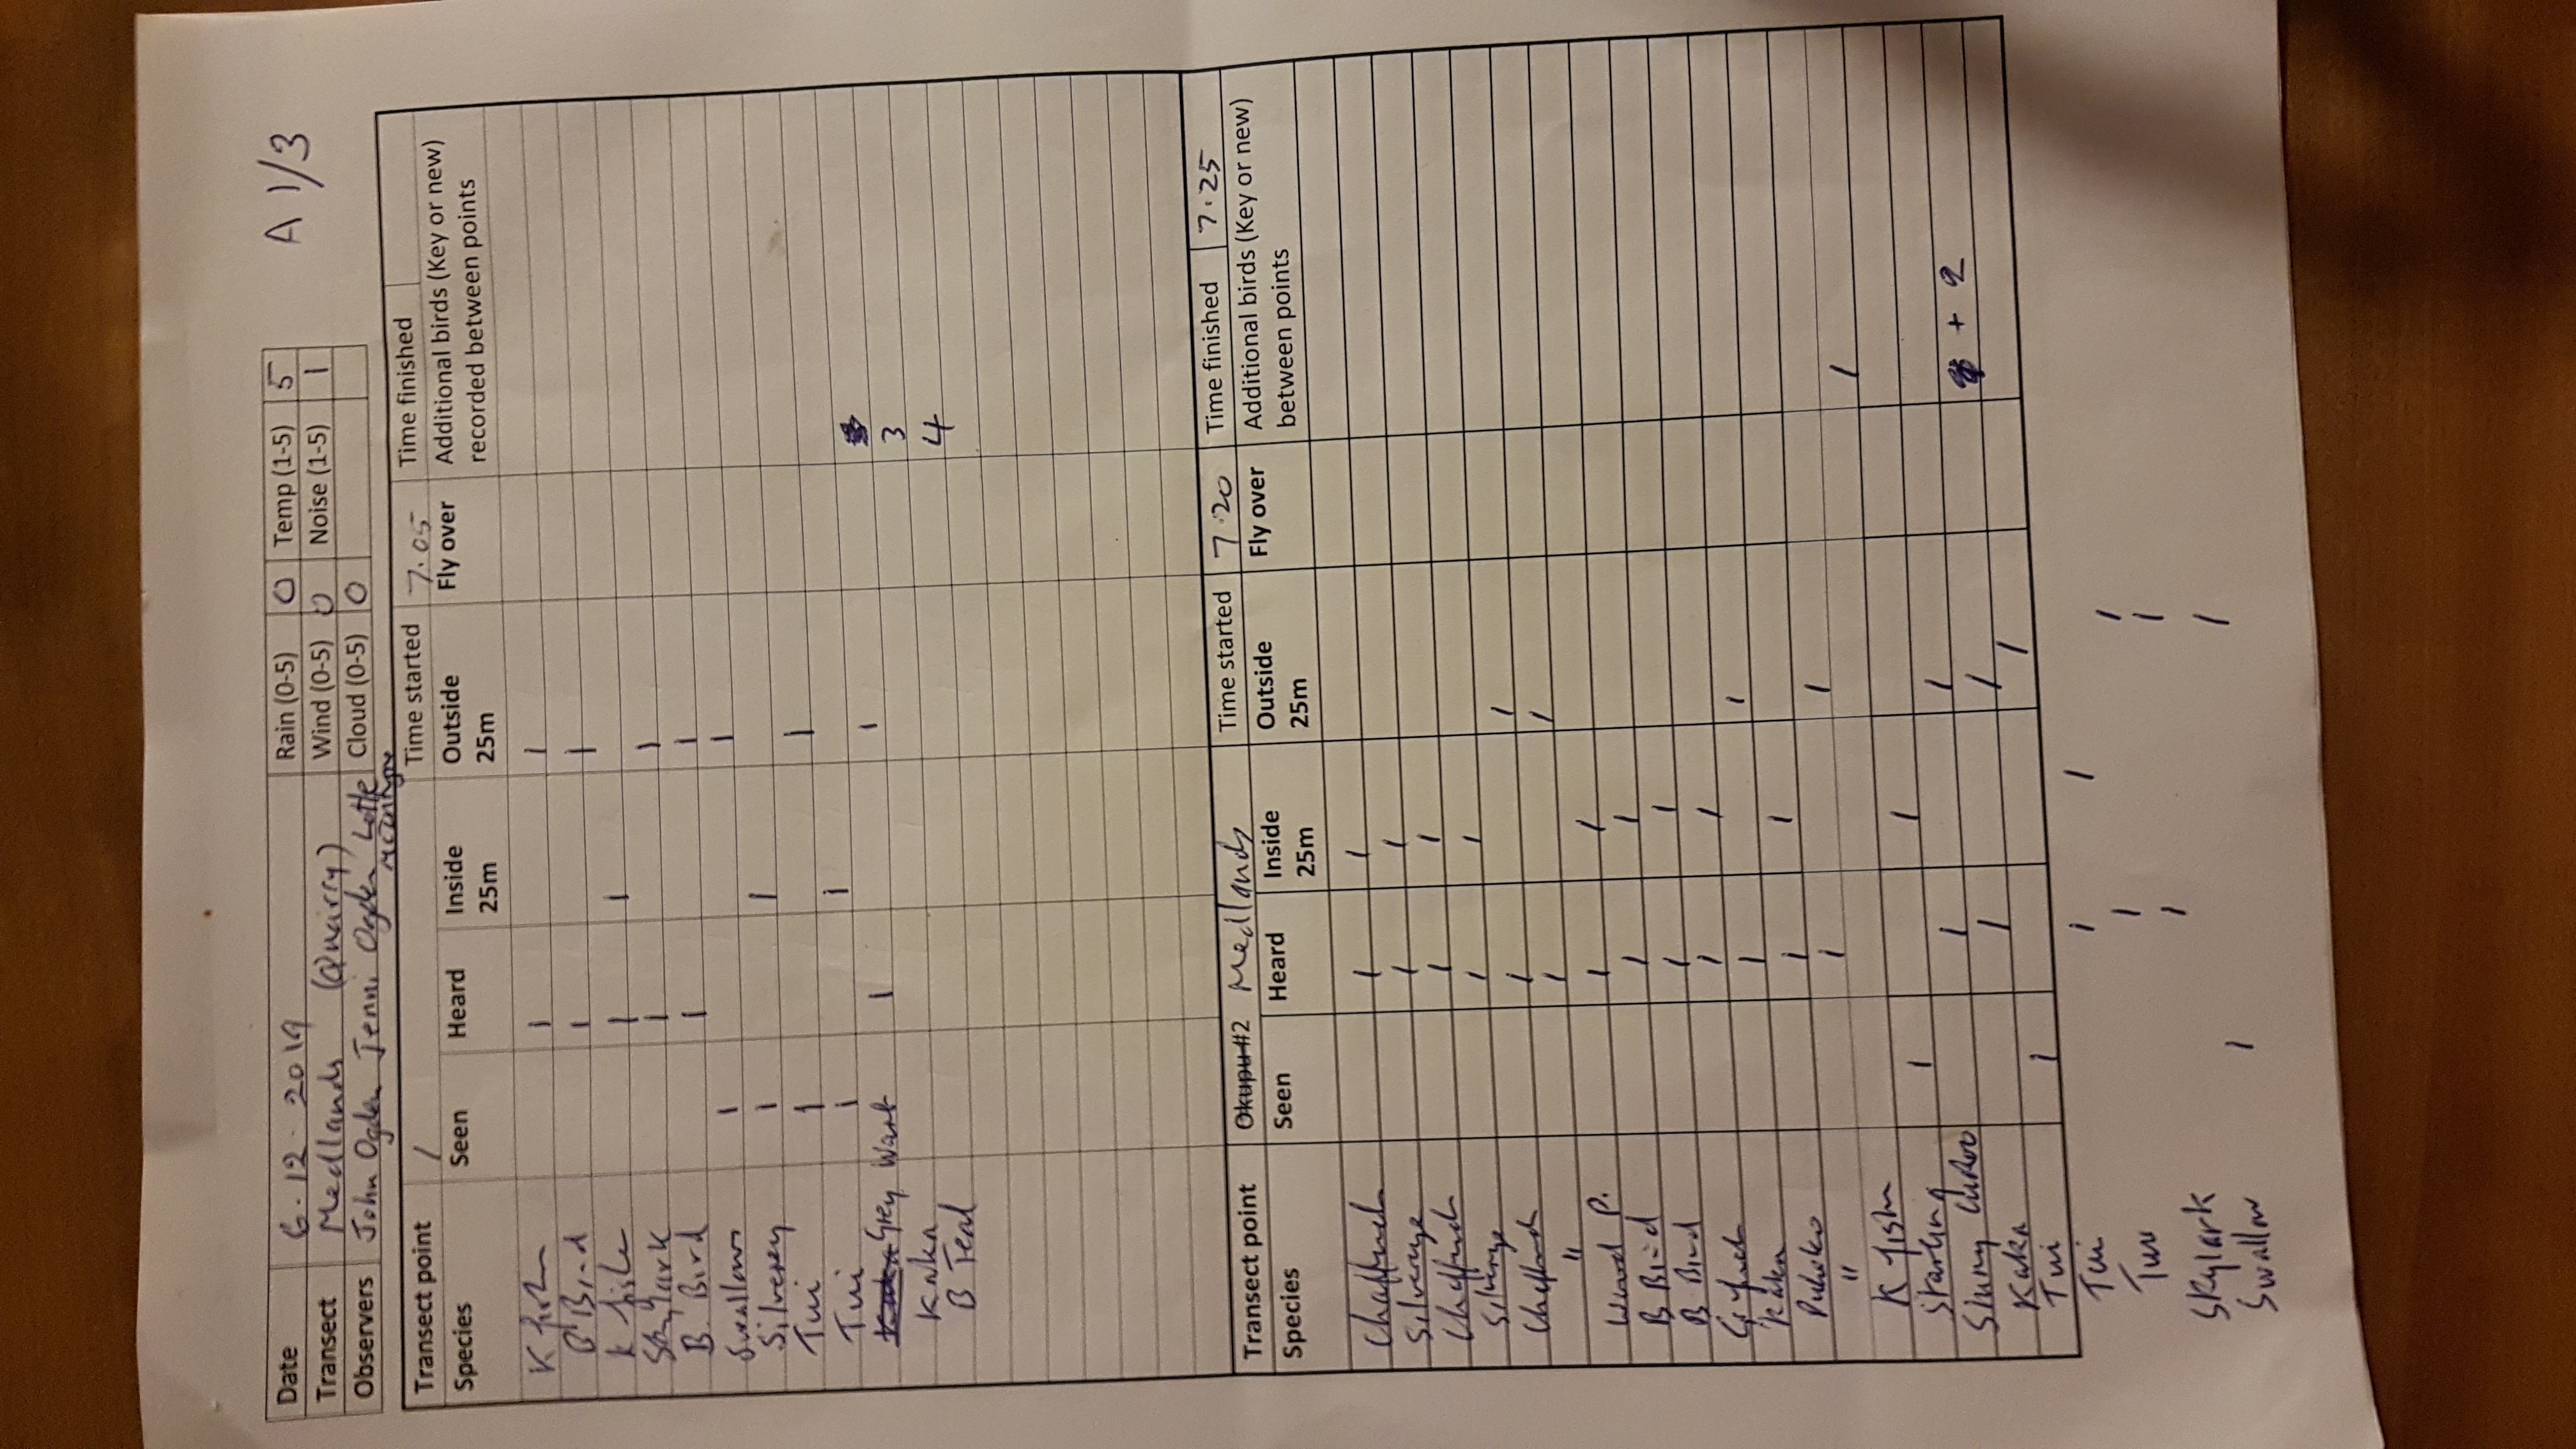 A 1/3
Date 6.12.2019 Rain (0-5) 0 Temp (1-5) 5
Transect Medlands (Quarry) Wind (0-5) 0 Noise (1-5) 1
Observers John Ogden Jenni Ogden Lotte McIntyre Cloud (0-5) 0
Transect point 1 Time started 7.05 Time finished
Species Seen Heard Inside 25m Outside 25m Fly over Additional birds (Key or new) recorded between points
K fisher 1 1
B Bird 1 1
K fisher 1 1
Skylark 1 1
B. Bird 1 1
Swallow 1 1
Silverey 1 1
Tui 1 1
Tui 1 1
Grey Warb 1 1
Kaka 3
B Teal 4
Transect point Okupu #2 Medlands Time started 7.20 Time finished 7.25
Species Seen Heard Inside 25m Outside 25m Fly over Additional birds (Key or new) between points
Chaffinch 1 1
Silvereye 1 1
Chaffinch 1 1
Silvereye 1 1
Chaffinch 1 1
" 1 1
Wood P. 1 1
B Bird 1 1
B Bird 1 1
G finch 1 1
Kaka 1 1
Pukeko 1 1
" 1 1
K fisher 1
Starling 1 1
Shiny Cukoo 1 1
Kaka 1 1 + 2
Tui 1 1
Tui 1 1
Tui 1 1
Skylark 1 1
Swallow 1 1